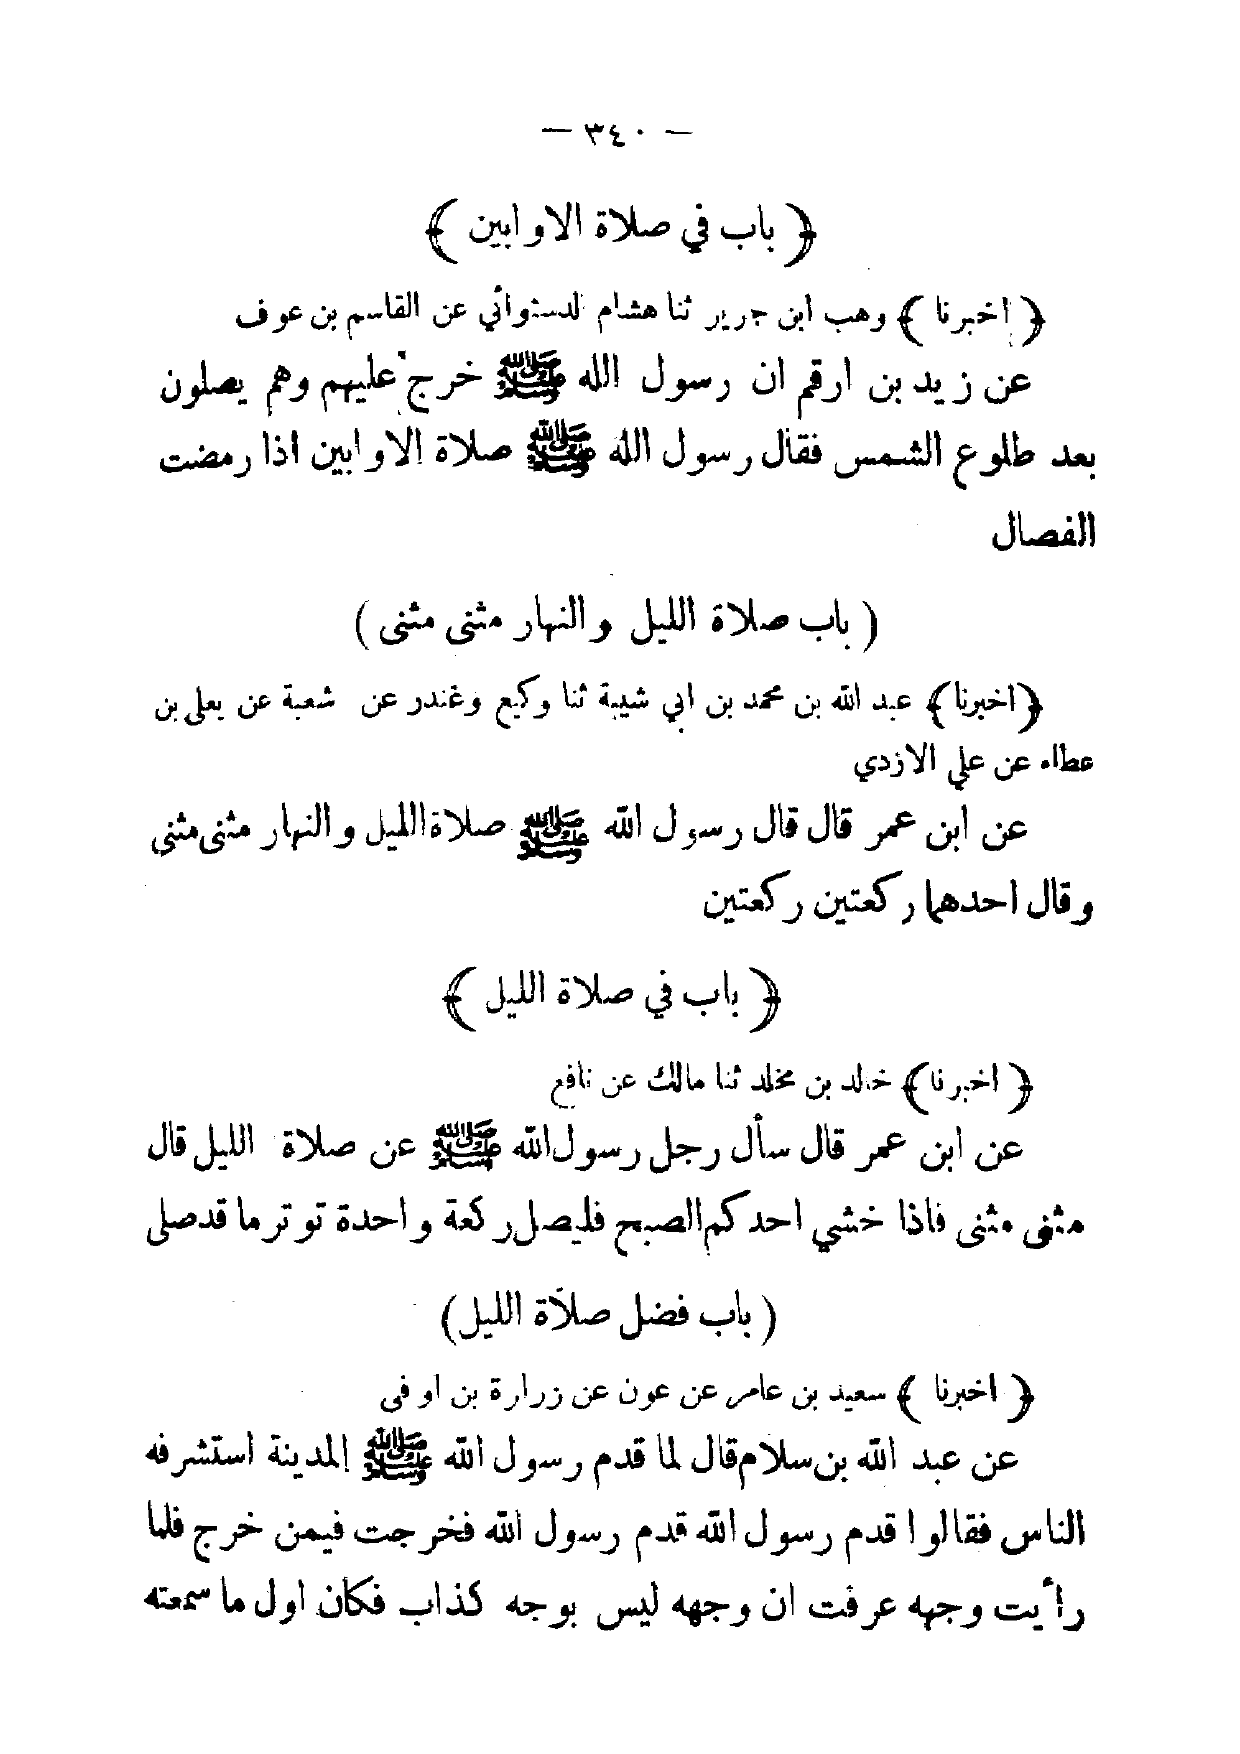 — ٣٤٠ —
﴿ باب في صلاة الاوابين ﴾
﴿ اخبرنا ﴾ وهب ابن جرير ثنا هشام لدستوائي عن القاسم بن عوف
عن زيد بن ارقم ان رسول الله ﷺ خرج عليهم وهم يصلون
بعد طلوع الشمس فقال رسول الله ﷺ صلاة الاوابين اذا رمضت
الفصال
( باب صلاة الليل والنهار مثنى مثنى )
﴿اخبرنا﴾ عبد الله بن محمد بن ابي شيبة ثنا وكيع وغندر عن شعبة عن يعلى بن
عطاء عن علي الازدي
عن ابن عمر قال قال رسول الله ﷺ صلاة الليل والنهار مثنى مثنى
وقال احدهما ركعتين ركعتين
﴿ باب في صلاة الليل ﴾
﴿ اخبرنا ﴾ خالد بن مخلد ثنا مالك عن نافع
عن ابن عمر قال سأل رجل رسول الله ﷺ عن صلاة الليل قال
مثنى مثنى فاذا خشي احدكم الصبح فليصل ركعة واحدة توتر ما قد صلى
( باب فضل صلاة الليل )
﴿ اخبرنا ﴾ سعيد بن عامر عن عون عن زرارة بن اوفى
عن عبد الله بن سلام قال لما قدم رسول الله ﷺ المدينة استشرفه
الناس فقالوا قدم رسول الله قدم رسول الله فخرجت فيمن خرج فلما
رأيت وجهه عرفت ان وجهه ليس بوجه كذاب فكان اول ما سمعته